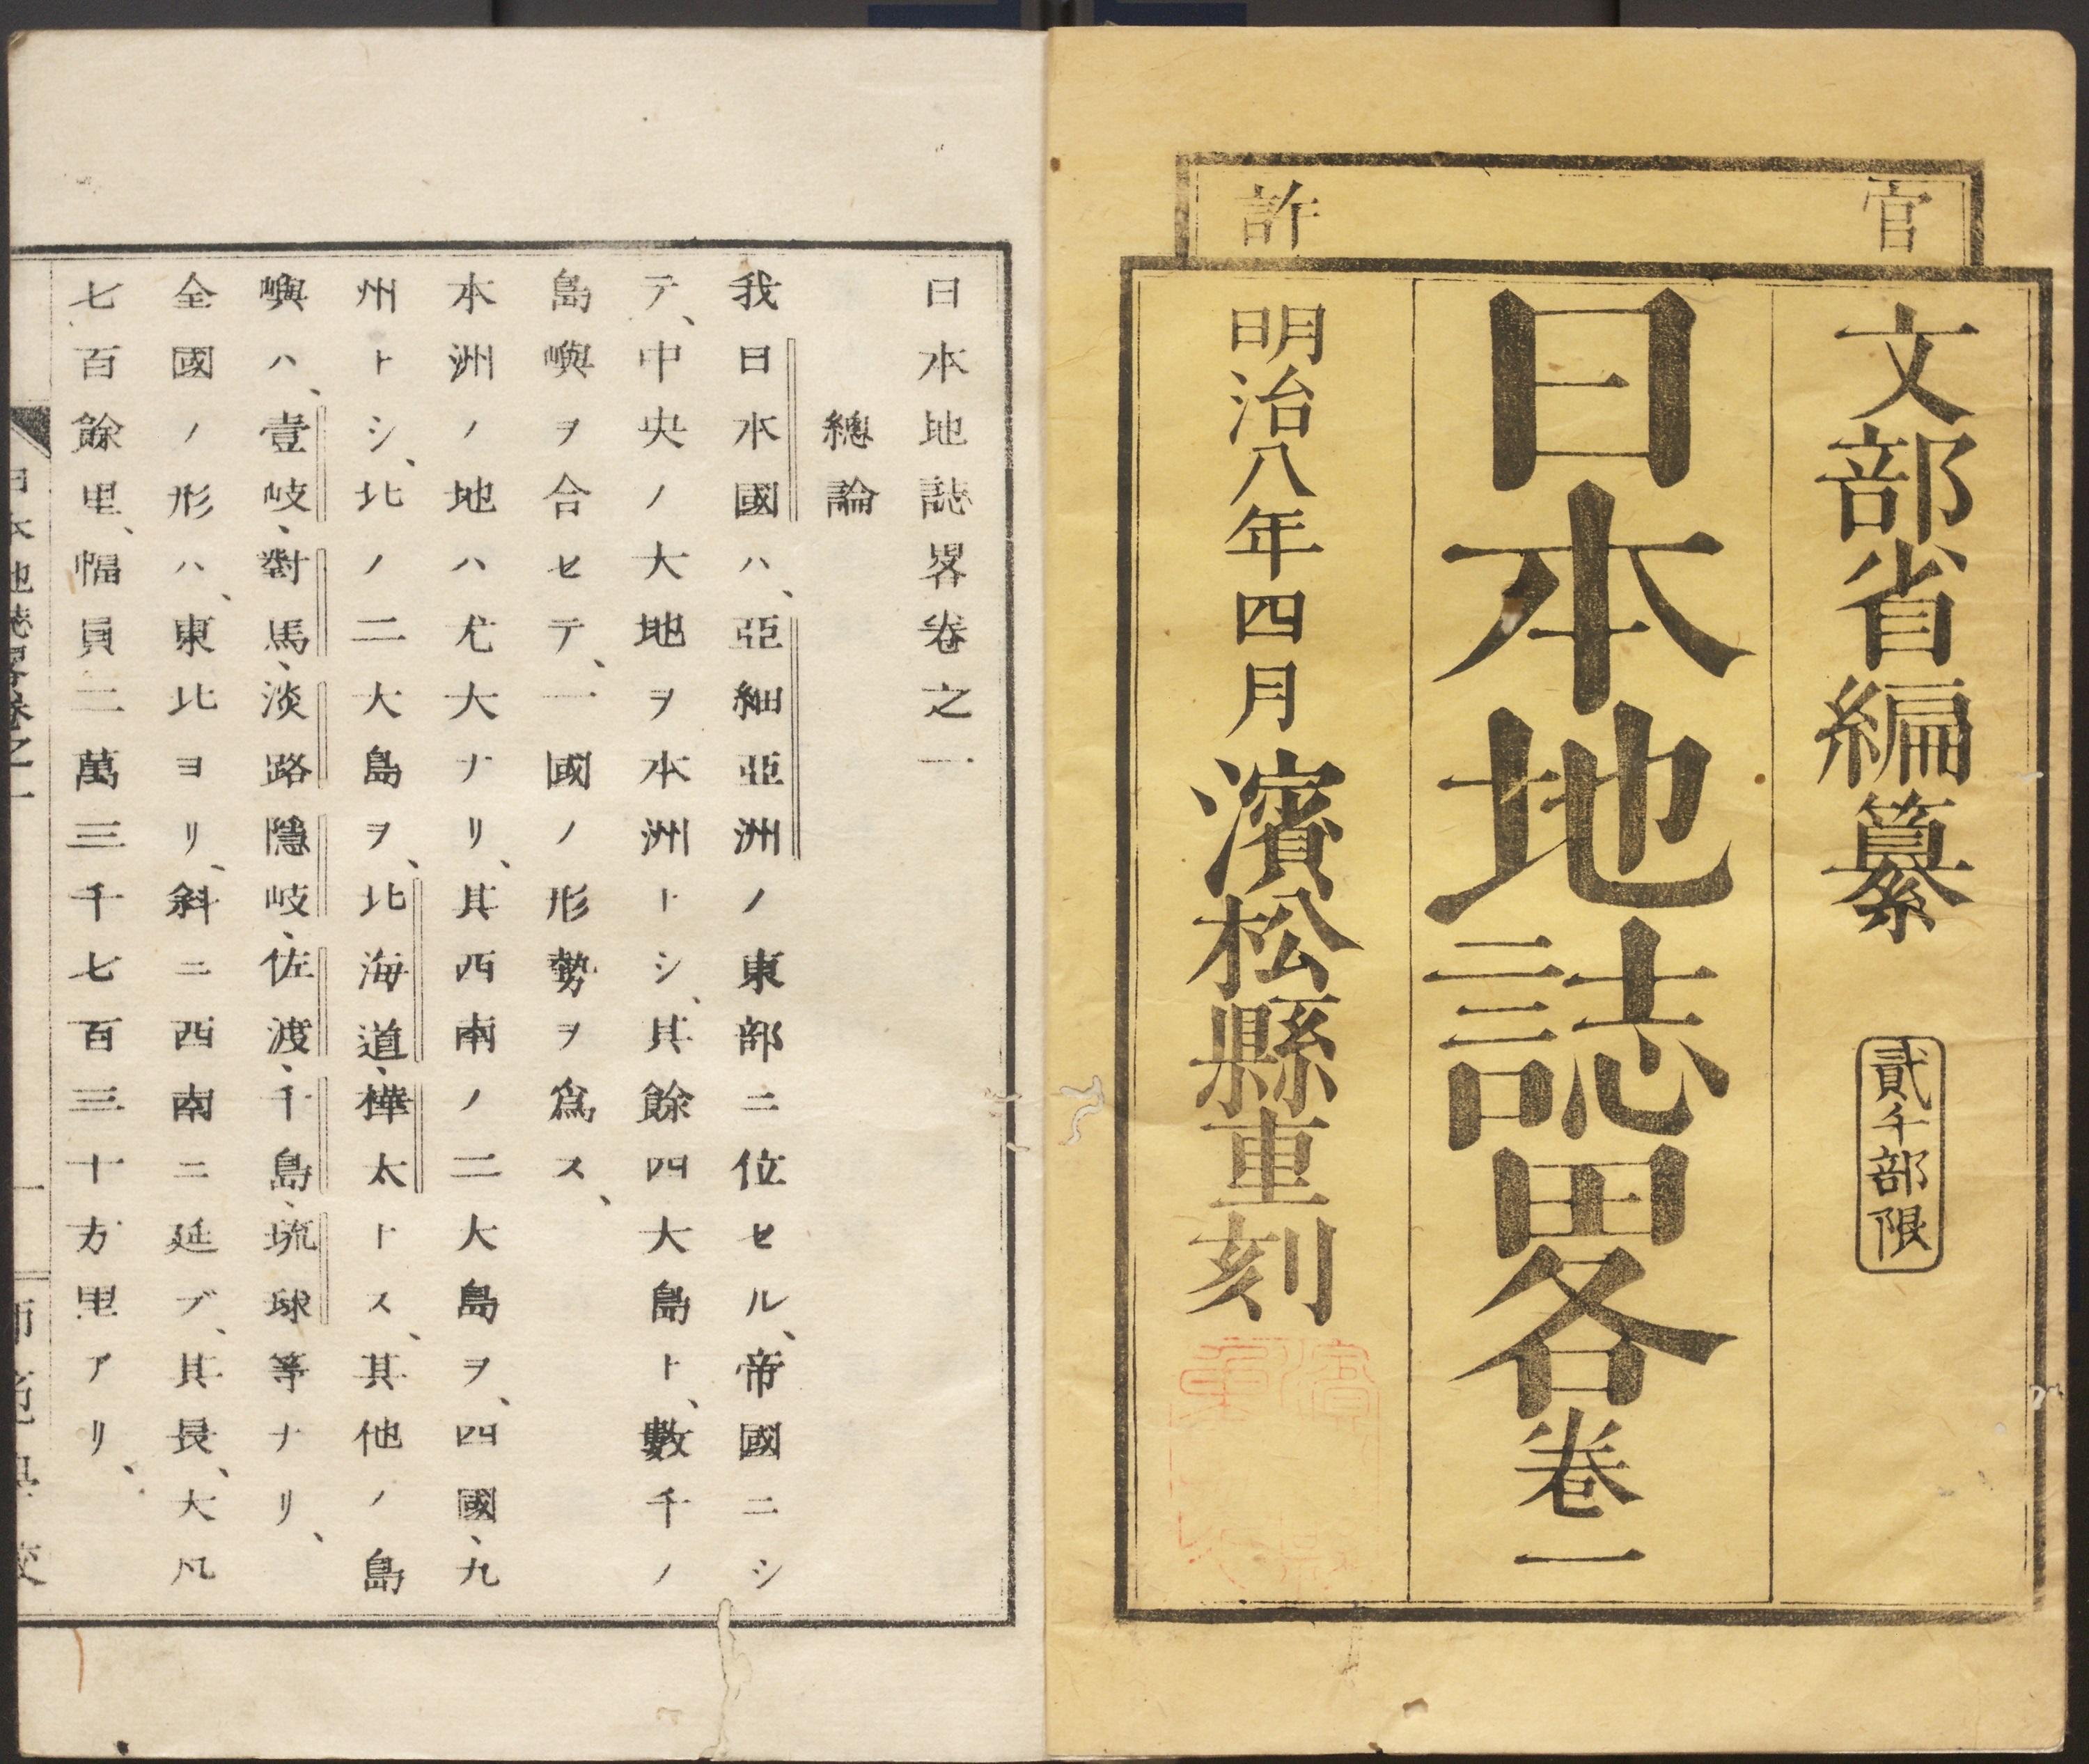 官許
文部省編纂
貳千部限
日本地誌畧卷一
明治八年四月濱松縣重刻
日本地誌畧卷之一
總論
我日本國ハ、亞細亞洲ノ東部ニ位セル、帝國ニシ
テ、中央ノ大地ヲ本洲トシ、其餘四大島ト、數千ノ
島嶼ヲ合セテ、一國ノ形勢ヲ爲ス、
本洲ノ地ハ尤大ナリ、其西南ノ二大島ヲ、四國、九
州トシ、北ノ二大島ヲ、北海道、樺太トス、其他ノ島
嶼ハ、壹岐、對馬、淡路、隱岐、佐渡、千島、琉球等ナリ、
全國ノ形ハ、東北ヨリ、斜ニ西南ニ延ブ、其長、大凡
七百餘里、幅員二萬三千七百三十方里アリ、
日本地誌畧卷之一
一
師範學校